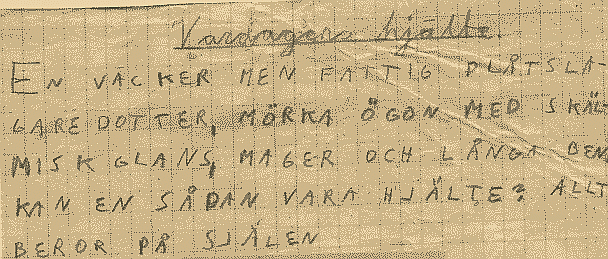 Vardagens hjälte.
EN VACKER MEN FATTIG PLÅTSLA-
GARE DOTTER, MÖRKA ÖGON MED SKÄL
MISK GLANS, MAGER OCH LÅNGA BEN
KAN EN SÅDAN VARA HJÄLTE? ALLT
BEROR PÅ SJÄLEN